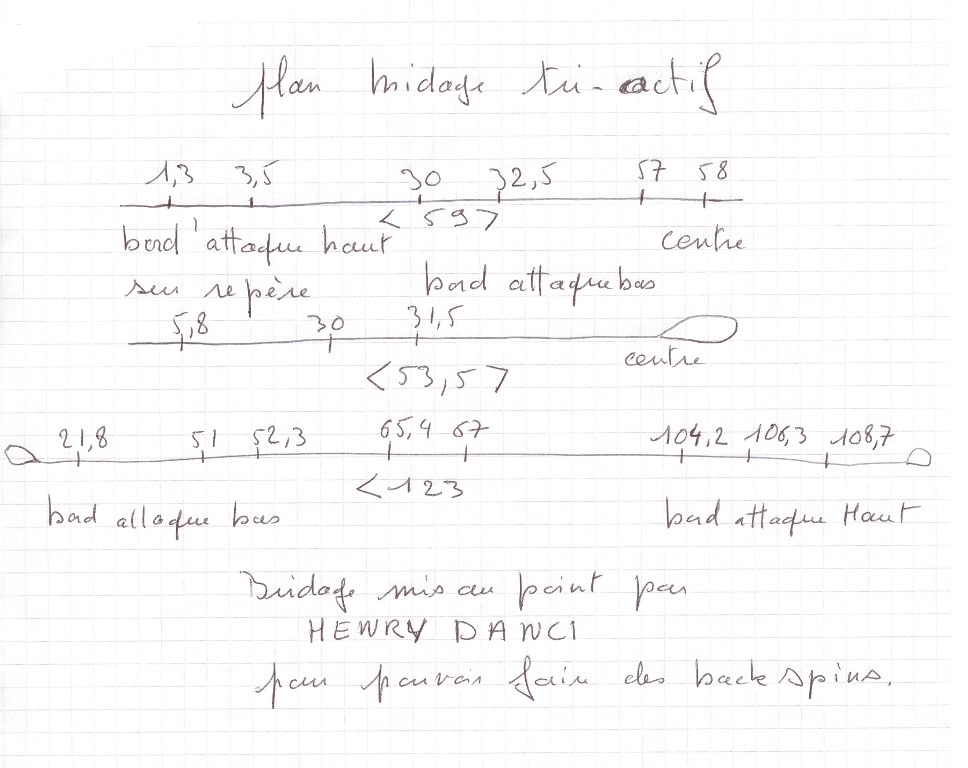 plan bridage tri-actif
1,3 3,5 30 32,5 57 58
< 59 >
bord d'attaque haut centre
sur repère bord attaque bas
5,8 30 31,5
centre
< 53,5 >
21,8 51 52,3 65,4 67 104,2 106,3 108,7
< 123
bord attaque bas bord attaque Haut
Bridage mis au point par
HENRY DANCI
pour pouvoir faire des back spins.